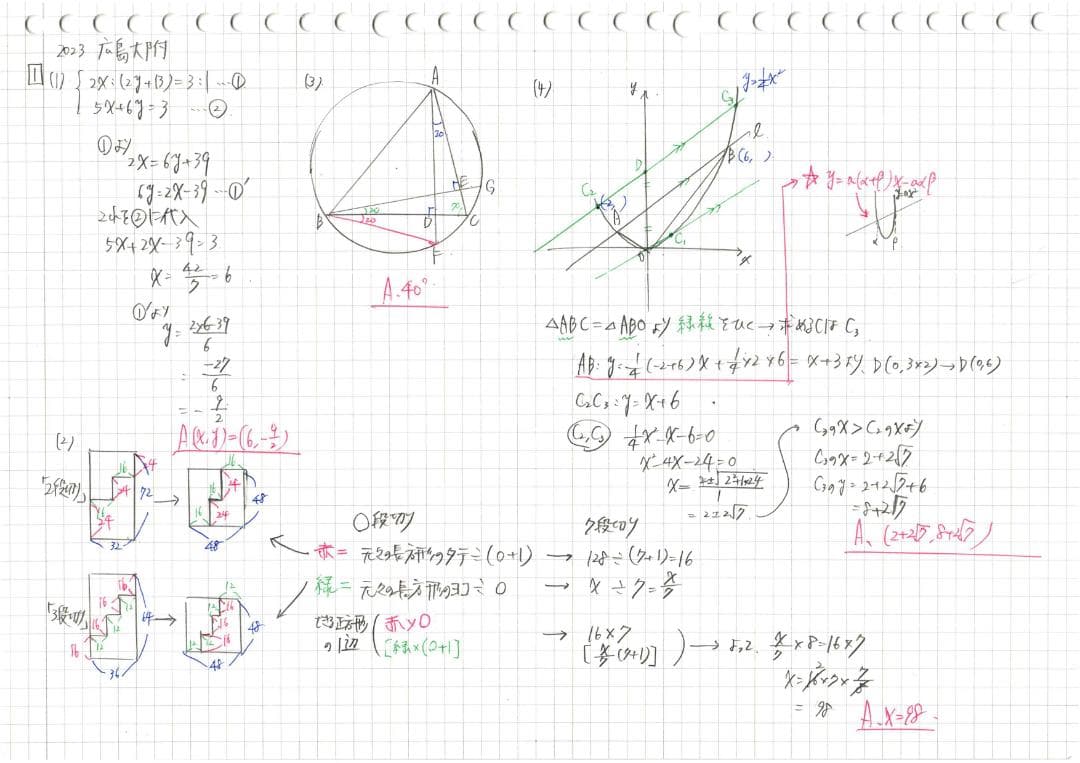 2023 広島大附
1 (1) { 2x:(2y+13)=3:1 …①
5x+6y=3 …②
①より
2x=6y+39
6y=2x-39 …①'
これを②に代入
5x+2x-39=3
x=42/7=6
①'より
y=2×6-39/6
=-27/6
=-9/2
A(x,y)=(6,-9/2)
(2)
「2段切り」
16
24
24
16
24
72
32
→
16
24
16
24
16
48
48
「3段切り」
16
12
16
12
16
12
16
64
36
→
12
12
16
16
12
16
12
48
48
○段切り
赤=元々の長方形のタテ÷(○+1)
緑=元々の長方形のヨコ÷○
できる正方形の1辺(赤×○
[緑×(○+1)]
7段切り
→ 128÷(7+1)=16
→ x÷7=x/7
→ 16×7
[x/7(7+1)]
→ よって、x/7×8=16×7
x=16×7×7/8
2
=98
A、x=98
(3)
A
20
E
G
B
20
20
D
70
C
F
A、40°
(4)
y
y=1/4x²
C₃
l
B(6, )
D
C₂
(-2, )
A
C₁
O
x
☆ y=a(α+β)x-aαβ
y=ax²
α
β
△ABC=△ABOより緑線をひく→求めるCはC₃
AB:y=1/4(-2+6)x+1/4×2×6=x+3より、D(0,3×2)→D(0,6)
C₂C₃:y=x+6
C₂,C₃ 1/4x²-x-6=0
x²-4x-24=0
x=2±√2²+1×24/1
=2±2√7
C₃のx>C₂のxより
C₃のx=2+2√7
C₃のy=2+2√7+6
=8+2√7
A、(2+2√7,8+2√7)